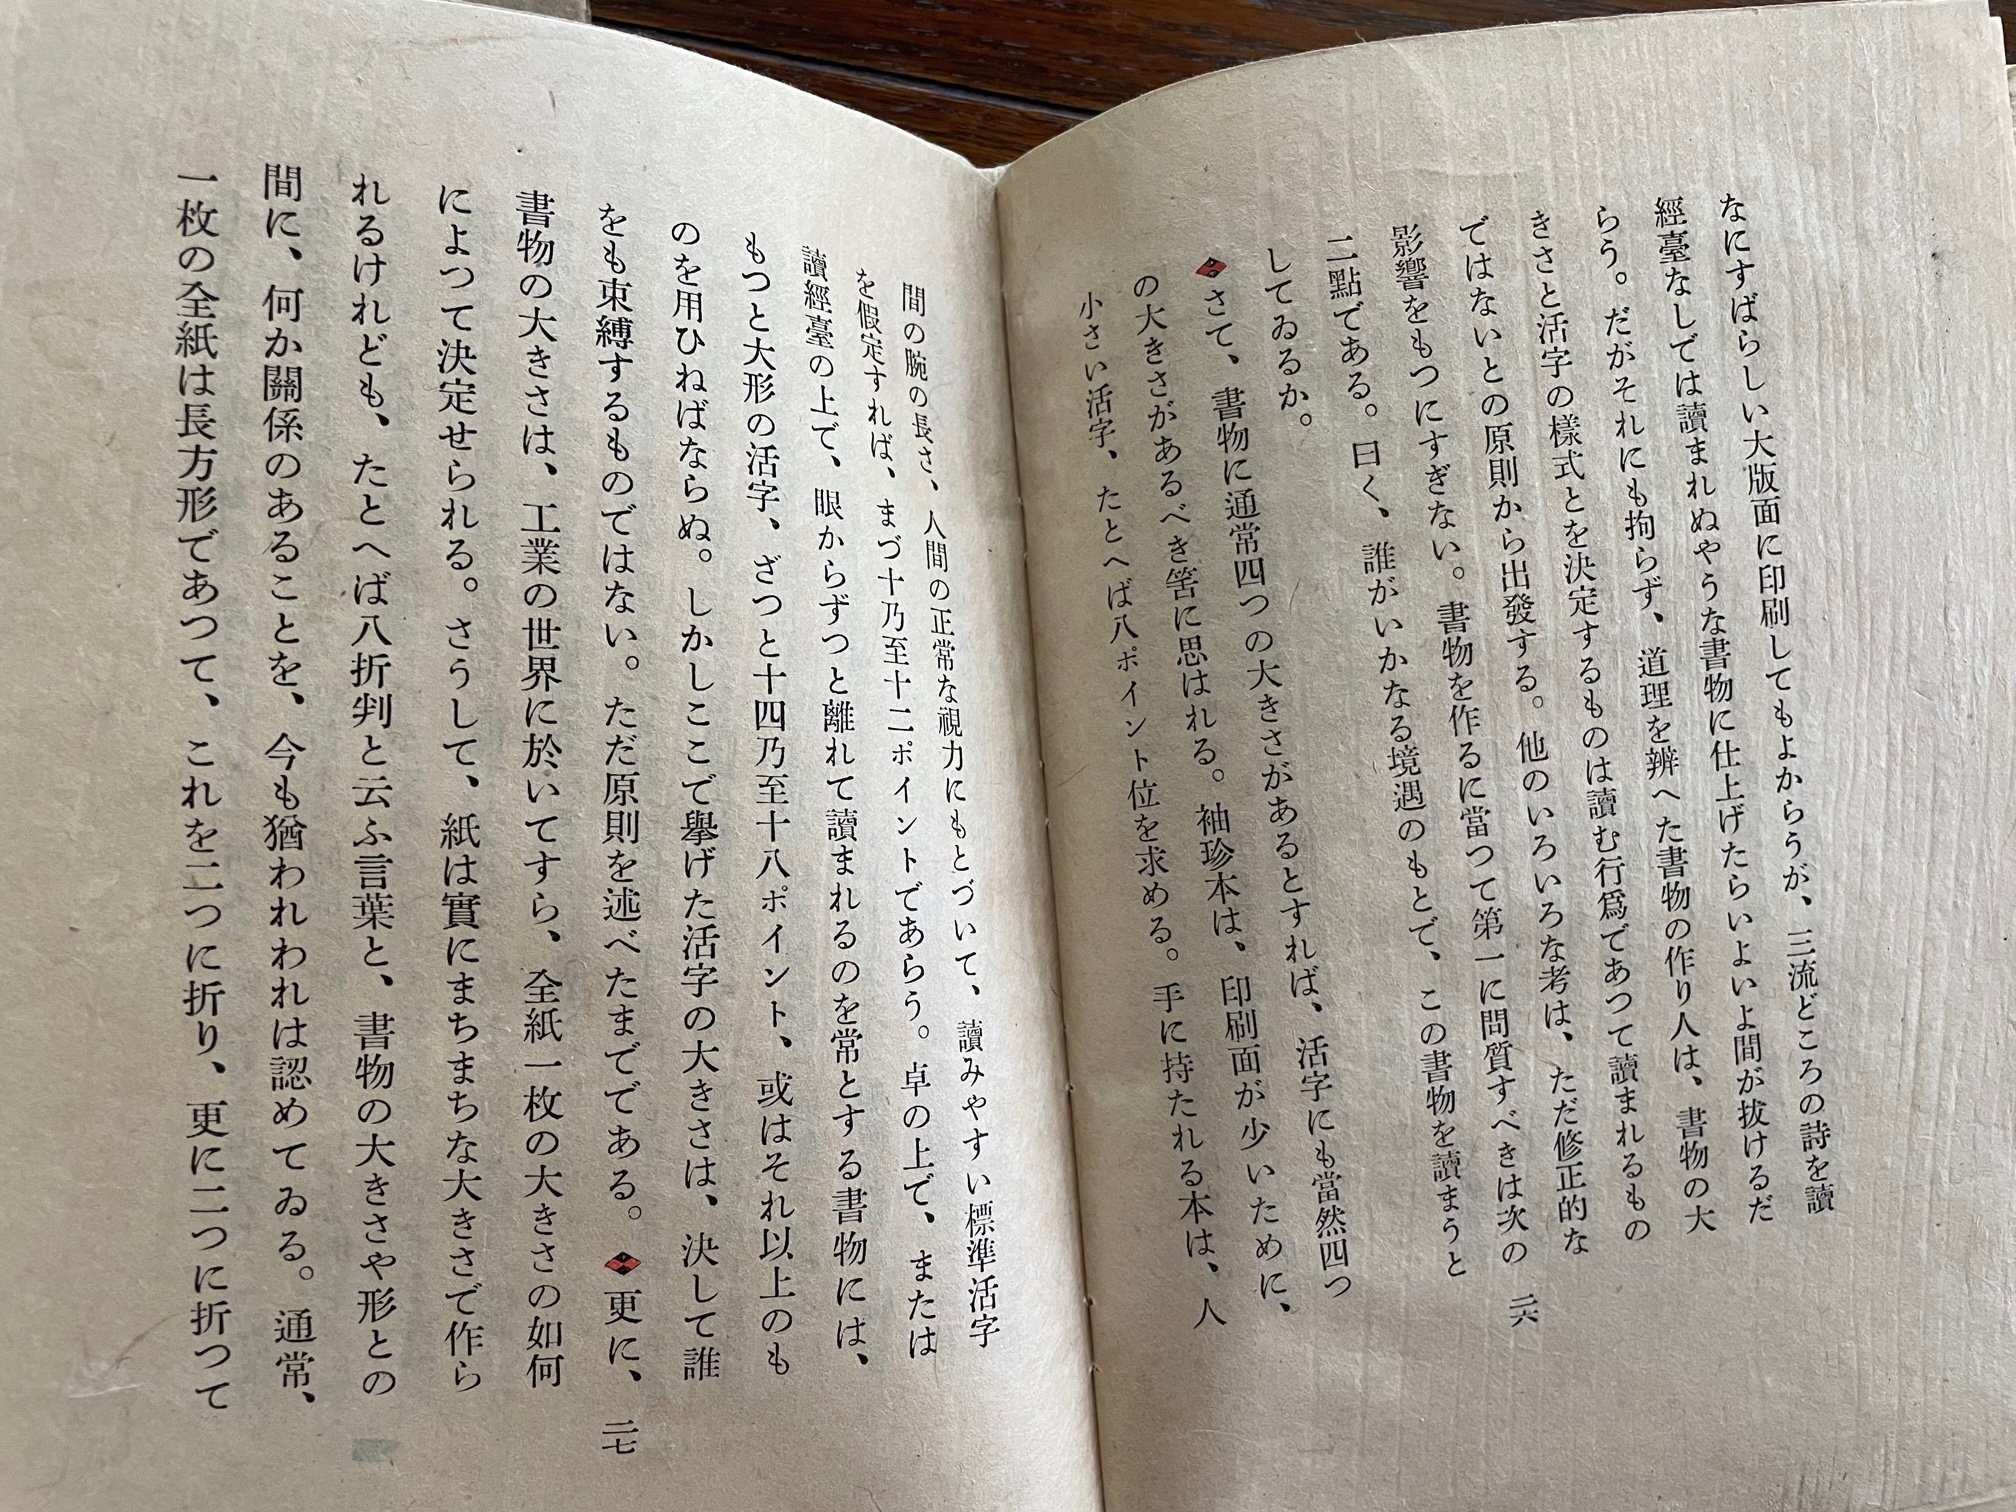 なにすばらしい大版面に印刷してもよからうが、三流どころの詩を讀
經臺なしでは讀まれぬやうな書物に仕上げたらいよいよ間が拔けるだ
らう。だがそれにも拘らず、道理を辨へた書物の作り人は、書物の大
きさと活字の樣式とを決定するものは讀む行爲であつて讀まれるもの
ではないとの原則から出發する。他のいろいろな考は、ただ修正的な
影響をもつにすぎない。書物を作るに當つて第一に問質すべきは次の
二點である。曰く、誰がいかなる境遇のもとで、この書物を讀まうと
してゐるか。
さて、書物に通常四つの大きさがあるとすれば、活字にも當然四つ
の大きさがあるべき筈に思はれる。袖珍本は、印刷面が少いために、
小さい活字、たとへば八ポイント位を求める。手に持たれる本は、人
二六
間の腕の長さ、人間の正常な視力にもとづいて、讀みやすい標準活字
を假定すれば、まづ十乃至十二ポイントであらう。卓の上で、または
讀經臺の上で、眼からずつと離れて讀まれるのを常とする書物には、
もつと大形の活字、ざつと十四乃至十八ポイント、或はそれ以上のも
のを用ひねばならぬ。しかしここで擧げた活字の大きさは、決して誰
をも束縛するものではない。ただ原則を述べたまでである。更に、
書物の大きさは、工業の世界に於いてすら、全紙一枚の大きさの如何
によつて決定せられる。さうして、紙は實にまちまちな大きさで作ら
れるけれども、たとへば八折判と云ふ言葉と、書物の大きさや形との
間に、何か關係のあることを、今も猶われわれは認めてゐる。通常、
一枚の全紙は長方形であつて、これを二つに折り、更に二つに折つて
二七